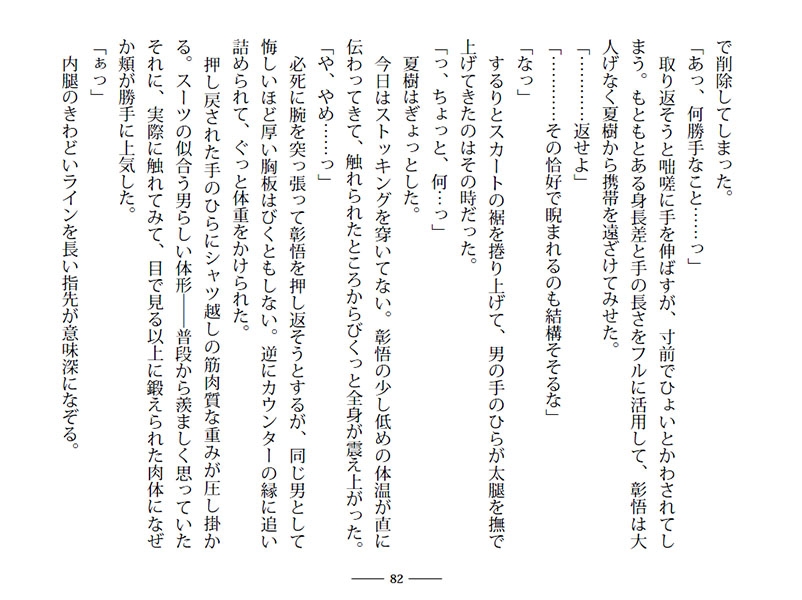 で削除してしまった。
「あっ、何勝手なこと……っ」
　取り返そうと咄嗟に手を伸ばすが、寸前でひょいとかわされてし
まう。もともとある身長差と手の長さをフルに活用して、彰悟は大
人げなく夏樹から携帯を遠ざけてみせた。
「…………返せよ」
「…………その恰好で睨まれるのも結構そそるな」
「なっ」
　するりとスカートの裾を捲り上げて、男の手のひらが太腿を撫で
上げてきたのはその時だった。
「っ、ちょっと、何…っ」
　夏樹はぎょっとした。
　今日はストッキングを穿いてない。彰悟の少し低めの体温が直に
伝わってきて、触れられたところからびくっと全身が震え上がった。
「や、やめ……っ」
　必死に腕を突っ張って彰悟を押し返そうとするが、同じ男として
悔しいほど厚い胸板はびくともしない。逆にカウンターの縁に追い
詰められて、ぐっと体重をかけられた。
　押し戻された手のひらにシャツ越しの筋肉質な重みが圧し掛か
る。スーツの似合う男らしい体形――普段から羨ましく思っていた
それに、実際に触れてみて、目で見る以上に鍛えられた肉体になぜ
か頬が勝手に上気した。
「ぁっ」
　内腿のきわどいラインを長い指先が意味深になぞる。
82